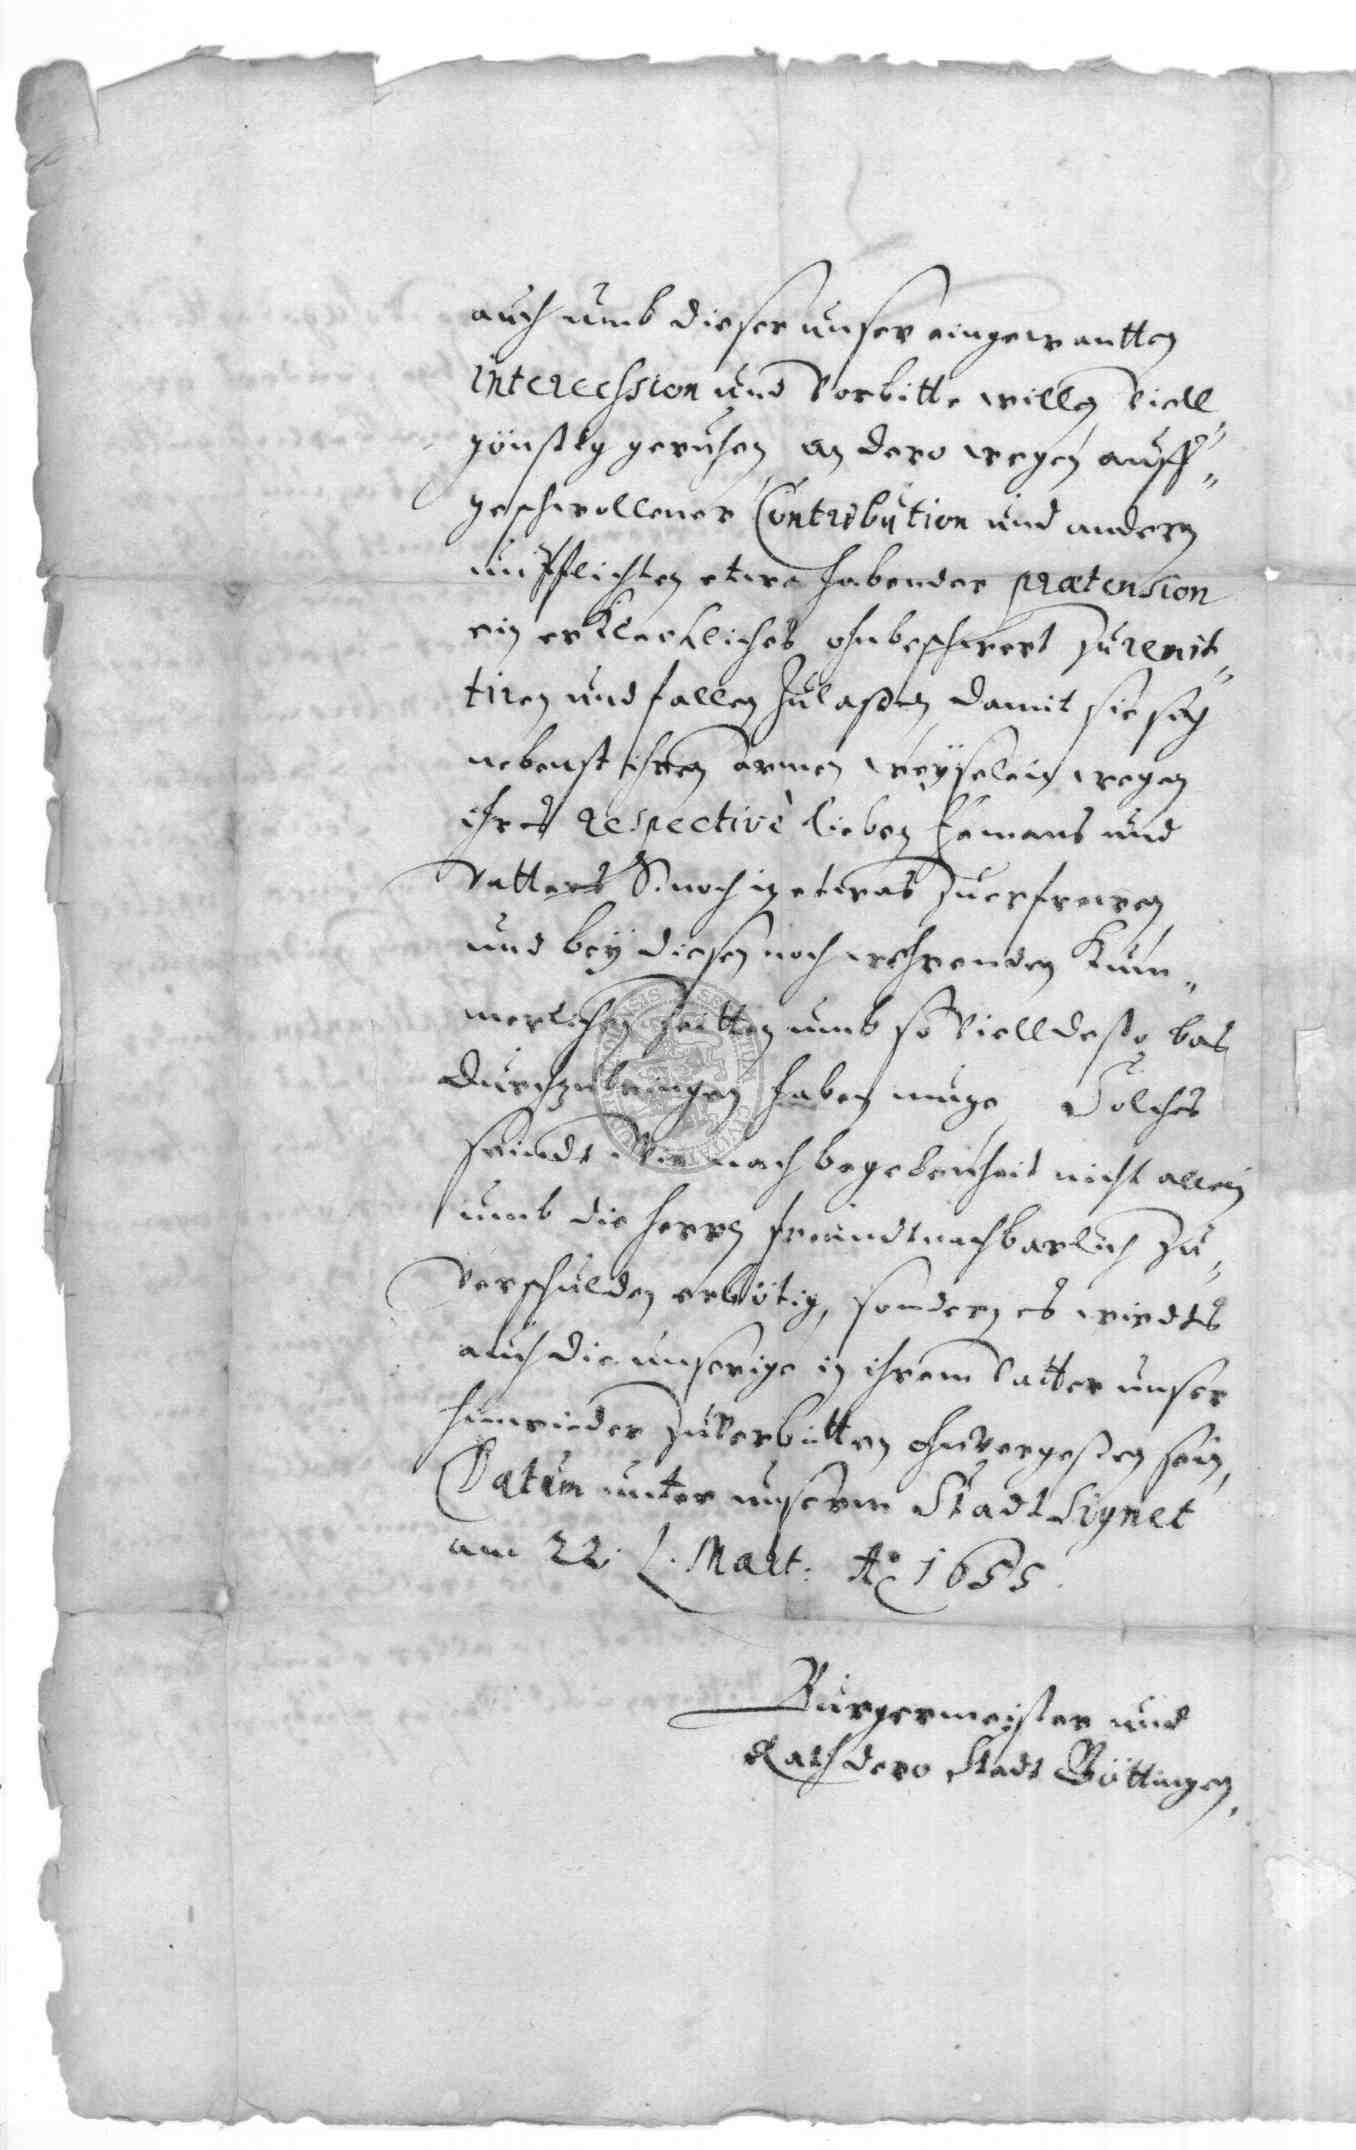 auch umb dieser unser eingewantten
intercession und Vorbitte willen Viell„
günstig geruhen, an dero wegen auff„
geschwollener Contribution und andern
unpflichten etwa habender prætension
ein erkleckliches ohnbeschwert zu remit„
tiren und fallen zulaßen, damit sie sich
nebenst ihren armen weÿselein wegen
ihres respectivè lieben Ehemans und
Vatters S. noch in etwas zuerfrewen
und beÿ diesen noch wehrenden Küm„
merlichen Zeitten umb so Viell desto bas
durchzubringen haben muge, Solches
seindt Wir nach begebenheit nicht allein
umb die herrn freundtnachbarlich zu„
Verschulden erbötig, sondern es wirdts
auch die unserige in ihrem Vatter unser
hinwieder zuVerbitten ohnvergeßen sein,
Datum unter unserm Stadt Signet
am 22. Mart: Aº 1655.
Bürgermeister und
Rath dero Stadt Göttingen,